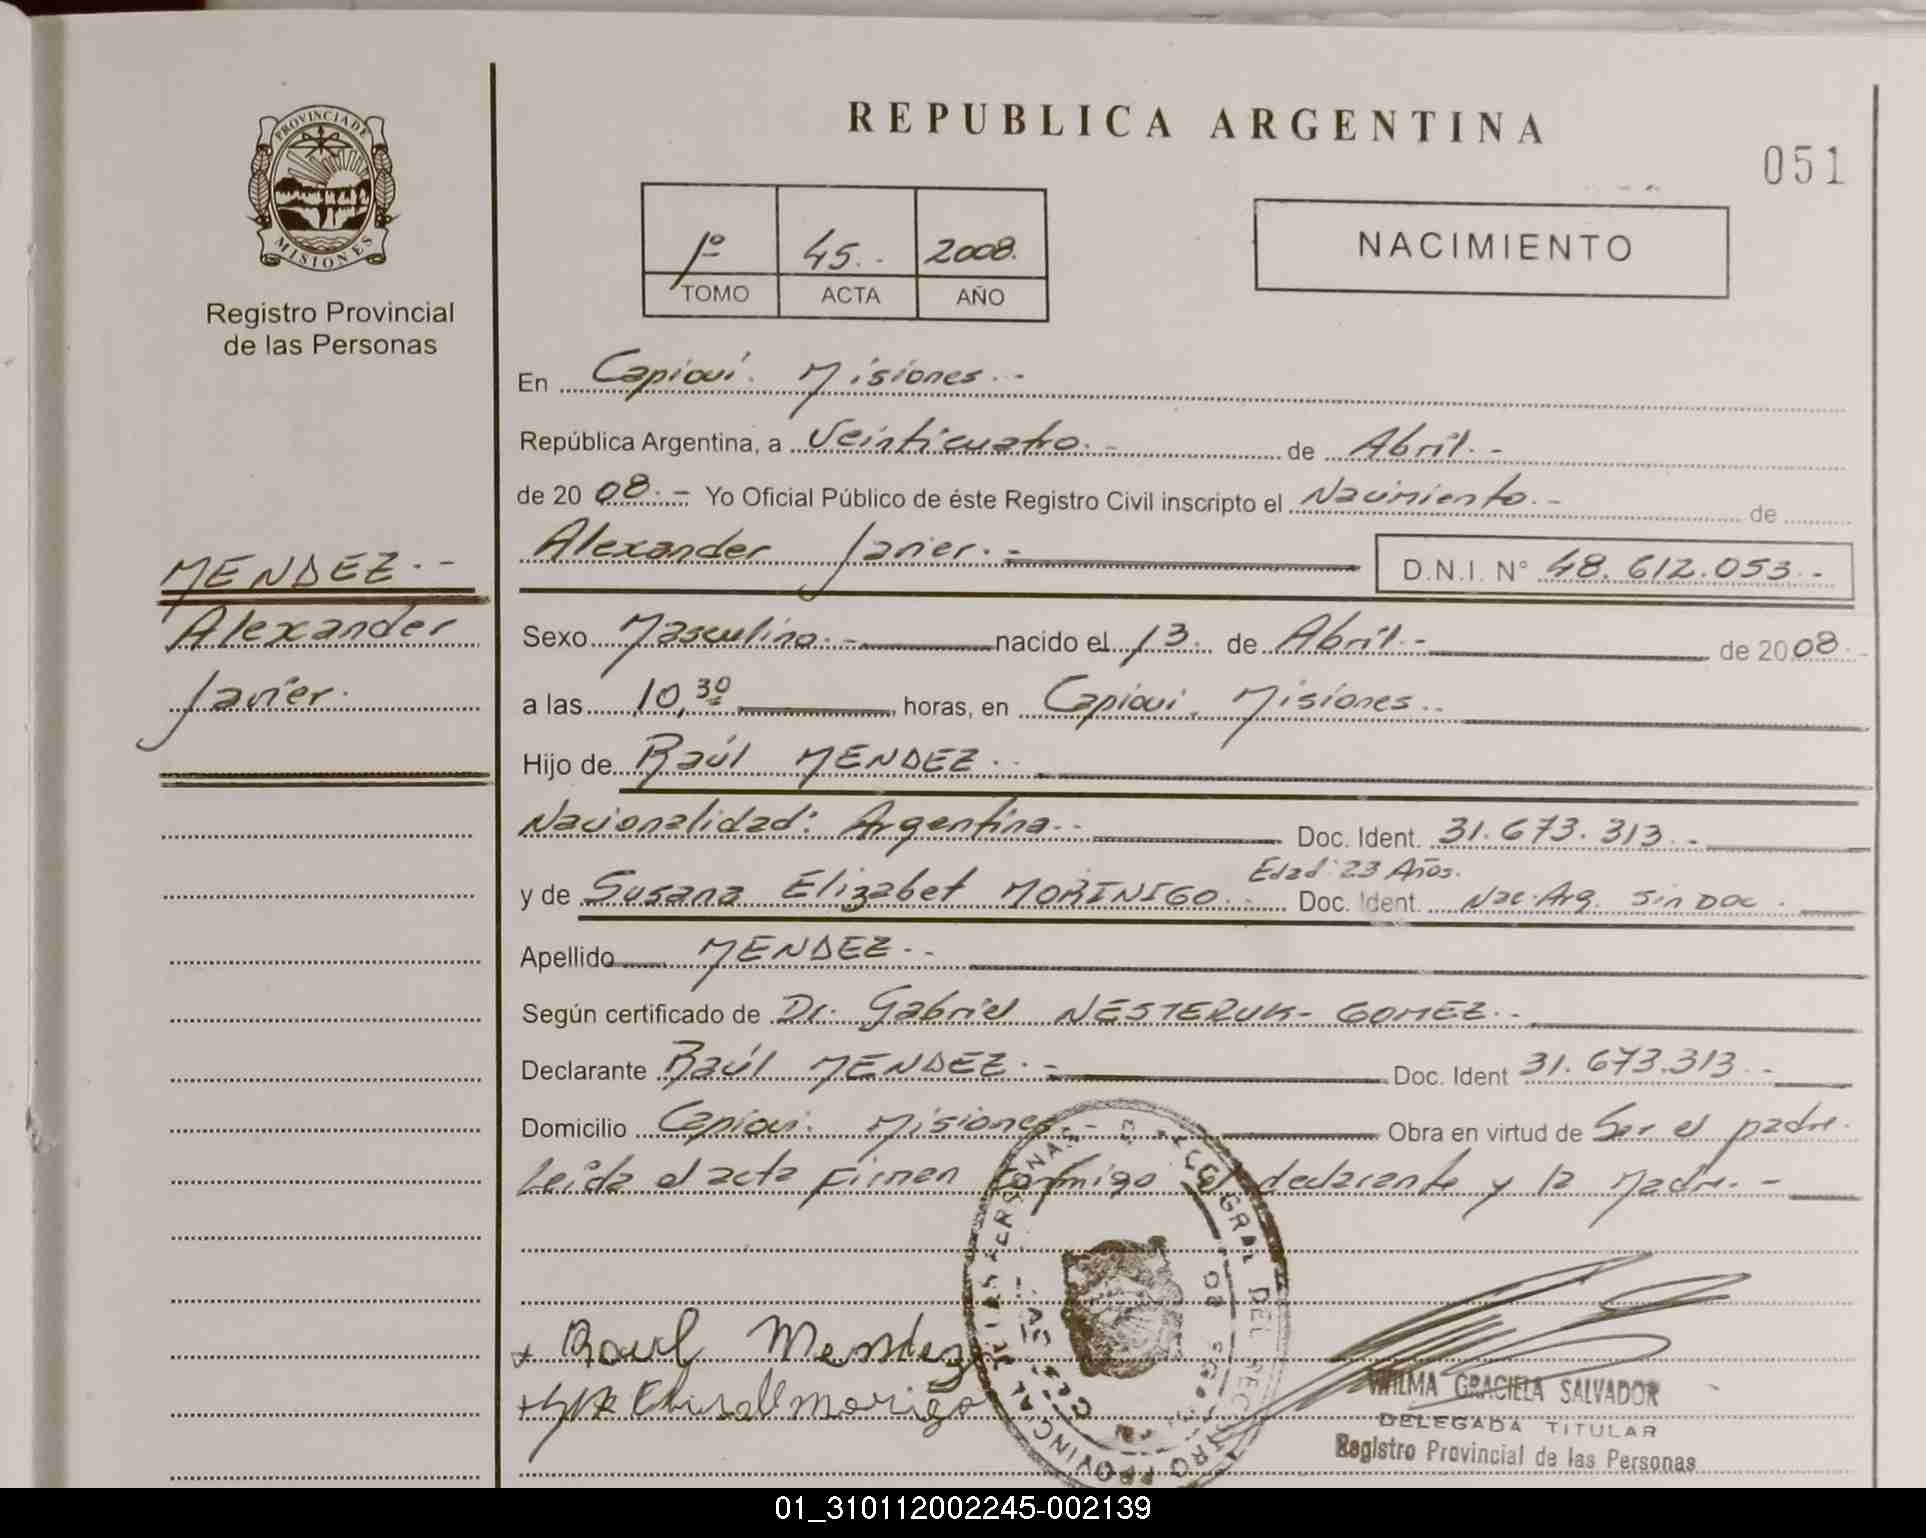 REPUBLICA ARGENTINA
051
PROVINCIA DE
MISIONES
Registro Provincial
de las Personas
1º 45.. 2008.
TOMO ACTA AÑO
NACIMIENTO
En Capioví. Misiones.-
República Argentina, a Veinticuatro.- de Abril.-
de 20 08.- Yo Oficial Público de éste Registro Civil inscripto el Nacimiento.- de
Alexander Javier.- D.N.I. Nº 48.612.053.-
MENDEZ.-
Alexander
Javier.
Sexo Masculino.- nacido el 13. de Abril.- de 2008.-
a las 10,30 horas, en Capiovi. Misiones..
Hijo de Raúl MENDEZ..
Nacionalidad: Argentina.- Doc. Ident. 31.673.313.-
Edad: 23 Años.
y de Susana Elizabet MORINIGO.- Doc. Ident. Nac. Arg. Sin Doc.
Apellido MENDEZ.-
Según certificado de Dr. Gabriel NESTERUK- GOMEZ.-
Declarante Raúl MENDEZ.- Doc. Ident 31.673.313.-
Domicilio Capiovi. Misiones.- Obra en virtud de Ser el padre.
Leída el acta Firman conmigo el declarante y la Madre.-
Raul Mendez
WILMA GRACIELA SALVADOR
DELEGADA TITULAR
Registro Provincial de las Personas
01_310112002245-002139